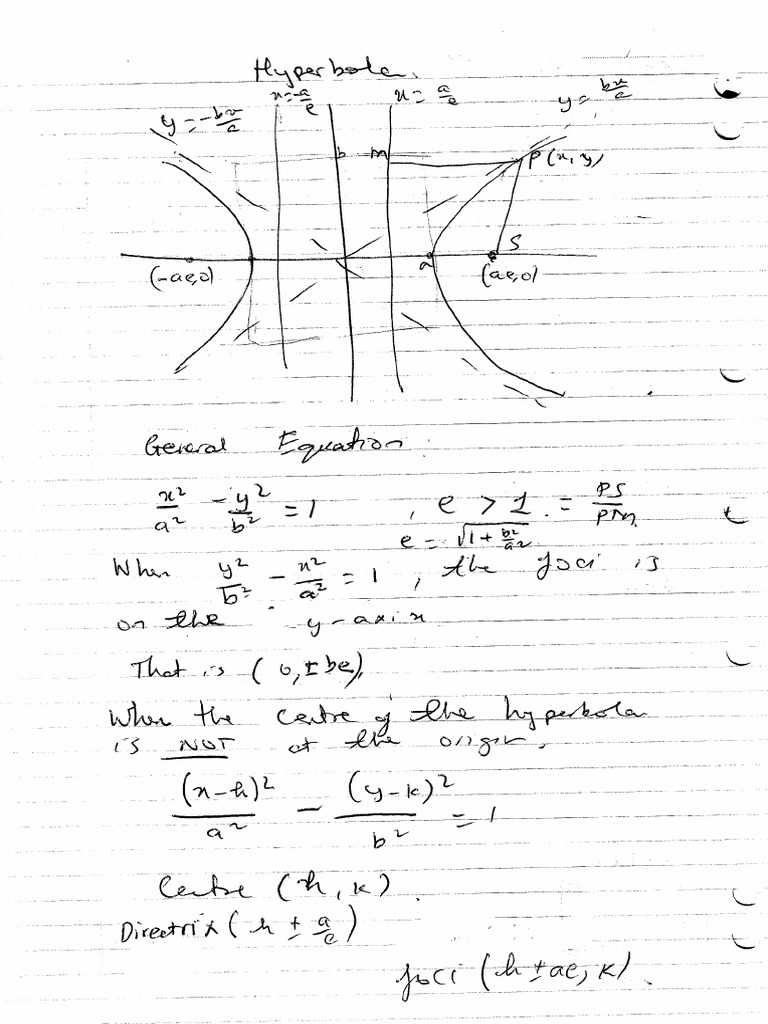 Hyperbola.
x = -a/e
x = a/e
y = bx/a
y = -bx/a
b
m
P(x, y)
S
a
(-ae, 0)
(ae, 0)
General Equation:
x²/a² - y²/b² = 1 , e > 1. = PS/PM
e = √(1 + b²/a²)
When y²/b² - x²/a² = 1 , the foci is
on the y-axis
That is (0, ± be),
When the centre of the hyperbola
is NOT at the origin,
(x-h)²/a² - (y-k)²/b² = 1
Centre (h, k).
Directrix (h ± a/e)
foci (h ± ae, k).